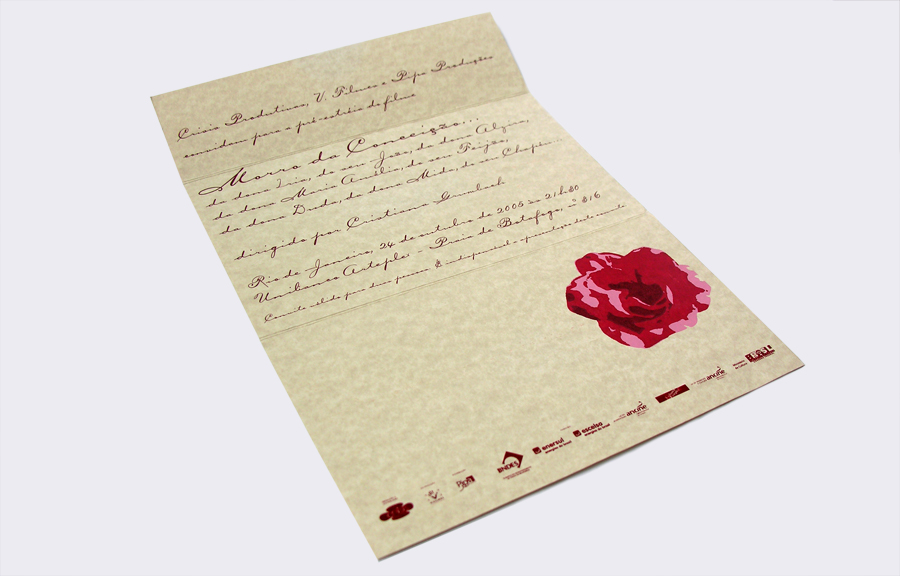 Crisis Produtivas, V. Filmes e Pipa Produções
convidam para a pré-estréia do filme
Morro da Conceição...
de dona Iria, do seu João, da dona Alzira,
da dona Maria Amélia, do seu Feijão,
da dona Dudu, da dona Mida, do seu Chapéu...
dirigido por Cristiana Grumbach
Rio de Janeiro, 24 de outubro de 2005 às 21h30
Unibanco Arteplex - Praia de Botafogo, nº 316
Convite válido para duas pessoas. É indispensável a apresentação deste convite
BNDES
enersul
escelsa
ancine
ancine